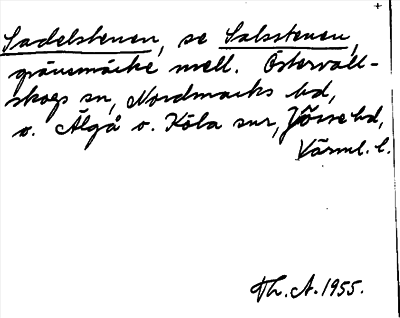 +
Sadelstenen, se Salsstenen,
gränsmärke mell. Östervall-
skogs sn, Nordmarks hd,
o. Älgå o. Köla snr, Jösse hd,
Värml. l.
Th. A. 1955.